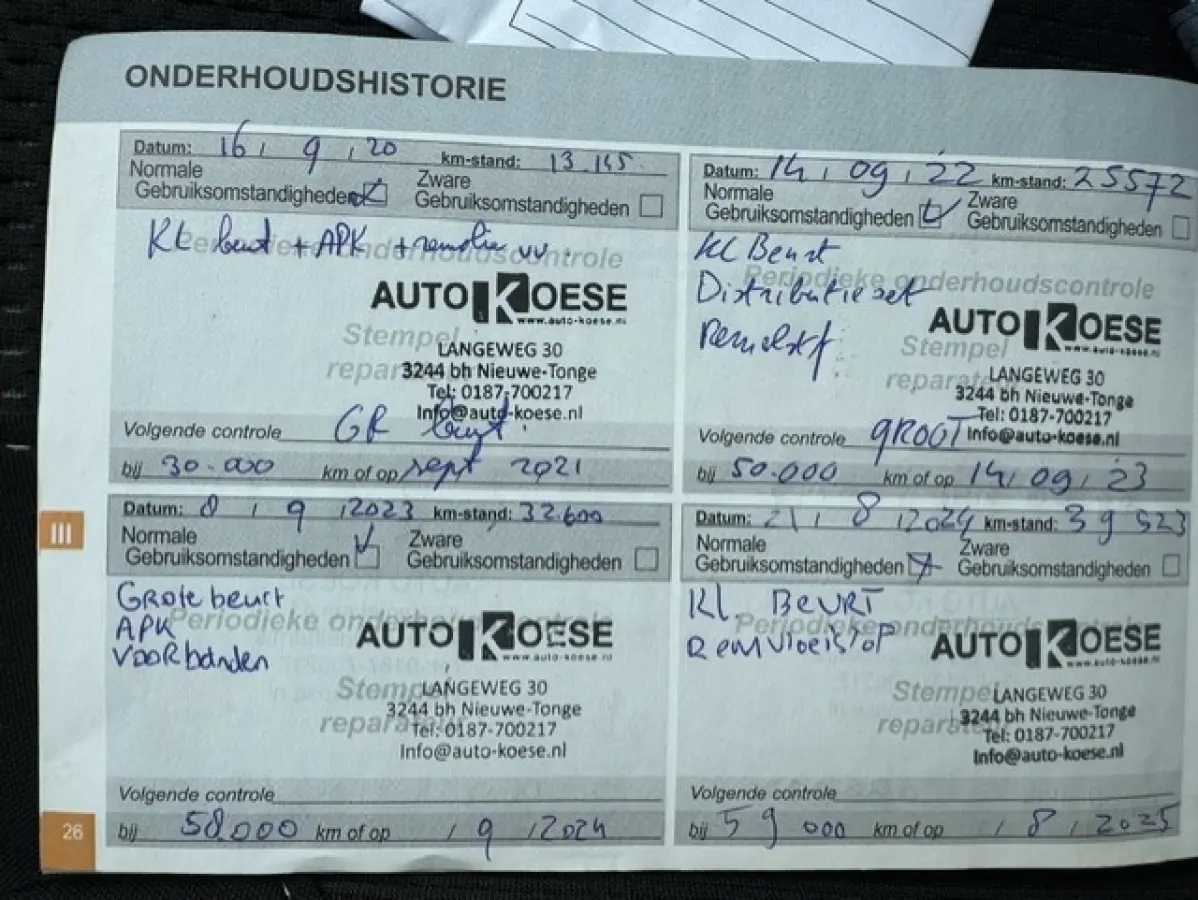 ONDERHOUDSHISTORIE
Datum: 16 / 9 / 20 km-stand: 13.145
Normale Gebruiksomstandigheden Zware Gebruiksomstandigheden
KL beurt + APK + remolie vv.
Periodieke onderhoudscontrole
AUTO KOESE
www.auto-koese.nl
Stempel reparateur
LANGEWEG 30
3244 bh Nieuwe-Tonge
Tel: 0187-700217
Info@auto-koese.nl
Volgende controle GR beurt.
bij 30.000 km of op sept 2021
Datum: 14 / 09 / 22 km-stand: 25572
Normale Gebruiksomstandigheden Zware Gebruiksomstandigheden
KL Beurt
Periodieke onderhoudscontrole
Distributie set
Remvlst
AUTO KOESE
www.auto-koese.nl
Stempel reparateur
LANGEWEG 30
3244 bh Nieuwe-Tonge
Tel: 0187-700217
Info@auto-koese.nl
Volgende controle GROOT
bij 50.000 km of op 14 / 09 / 23
III
Datum: 8 / 9 / 2023 km-stand: 32.600
Normale Gebruiksomstandigheden Zware Gebruiksomstandigheden
Grote beurt
Periodieke onderhoudscontrole
APK
Voorbanden
AUTO KOESE
www.auto-koese.nl
Stempel reparateur
LANGEWEG 30
3244 bh Nieuwe-Tonge
Tel: 0187-700217
Info@auto-koese.nl
Volgende controle
bij 50.000 km of op / 9 / 2024
Datum: 21 / 8 / 2024 km-stand: 39 523
Normale Gebruiksomstandigheden Zware Gebruiksomstandigheden
Kl. BEURT
Periodieke onderhoudscontrole
Remvloeistof
AUTO KOESE
www.auto-koese.nl
Stempel reparateur
LANGEWEG 30
3244 bh Nieuwe-Tonge
Tel: 0187-700217
Info@auto-koese.nl
Volgende controle
bij 59 000 km of op / 8 / 2025
26